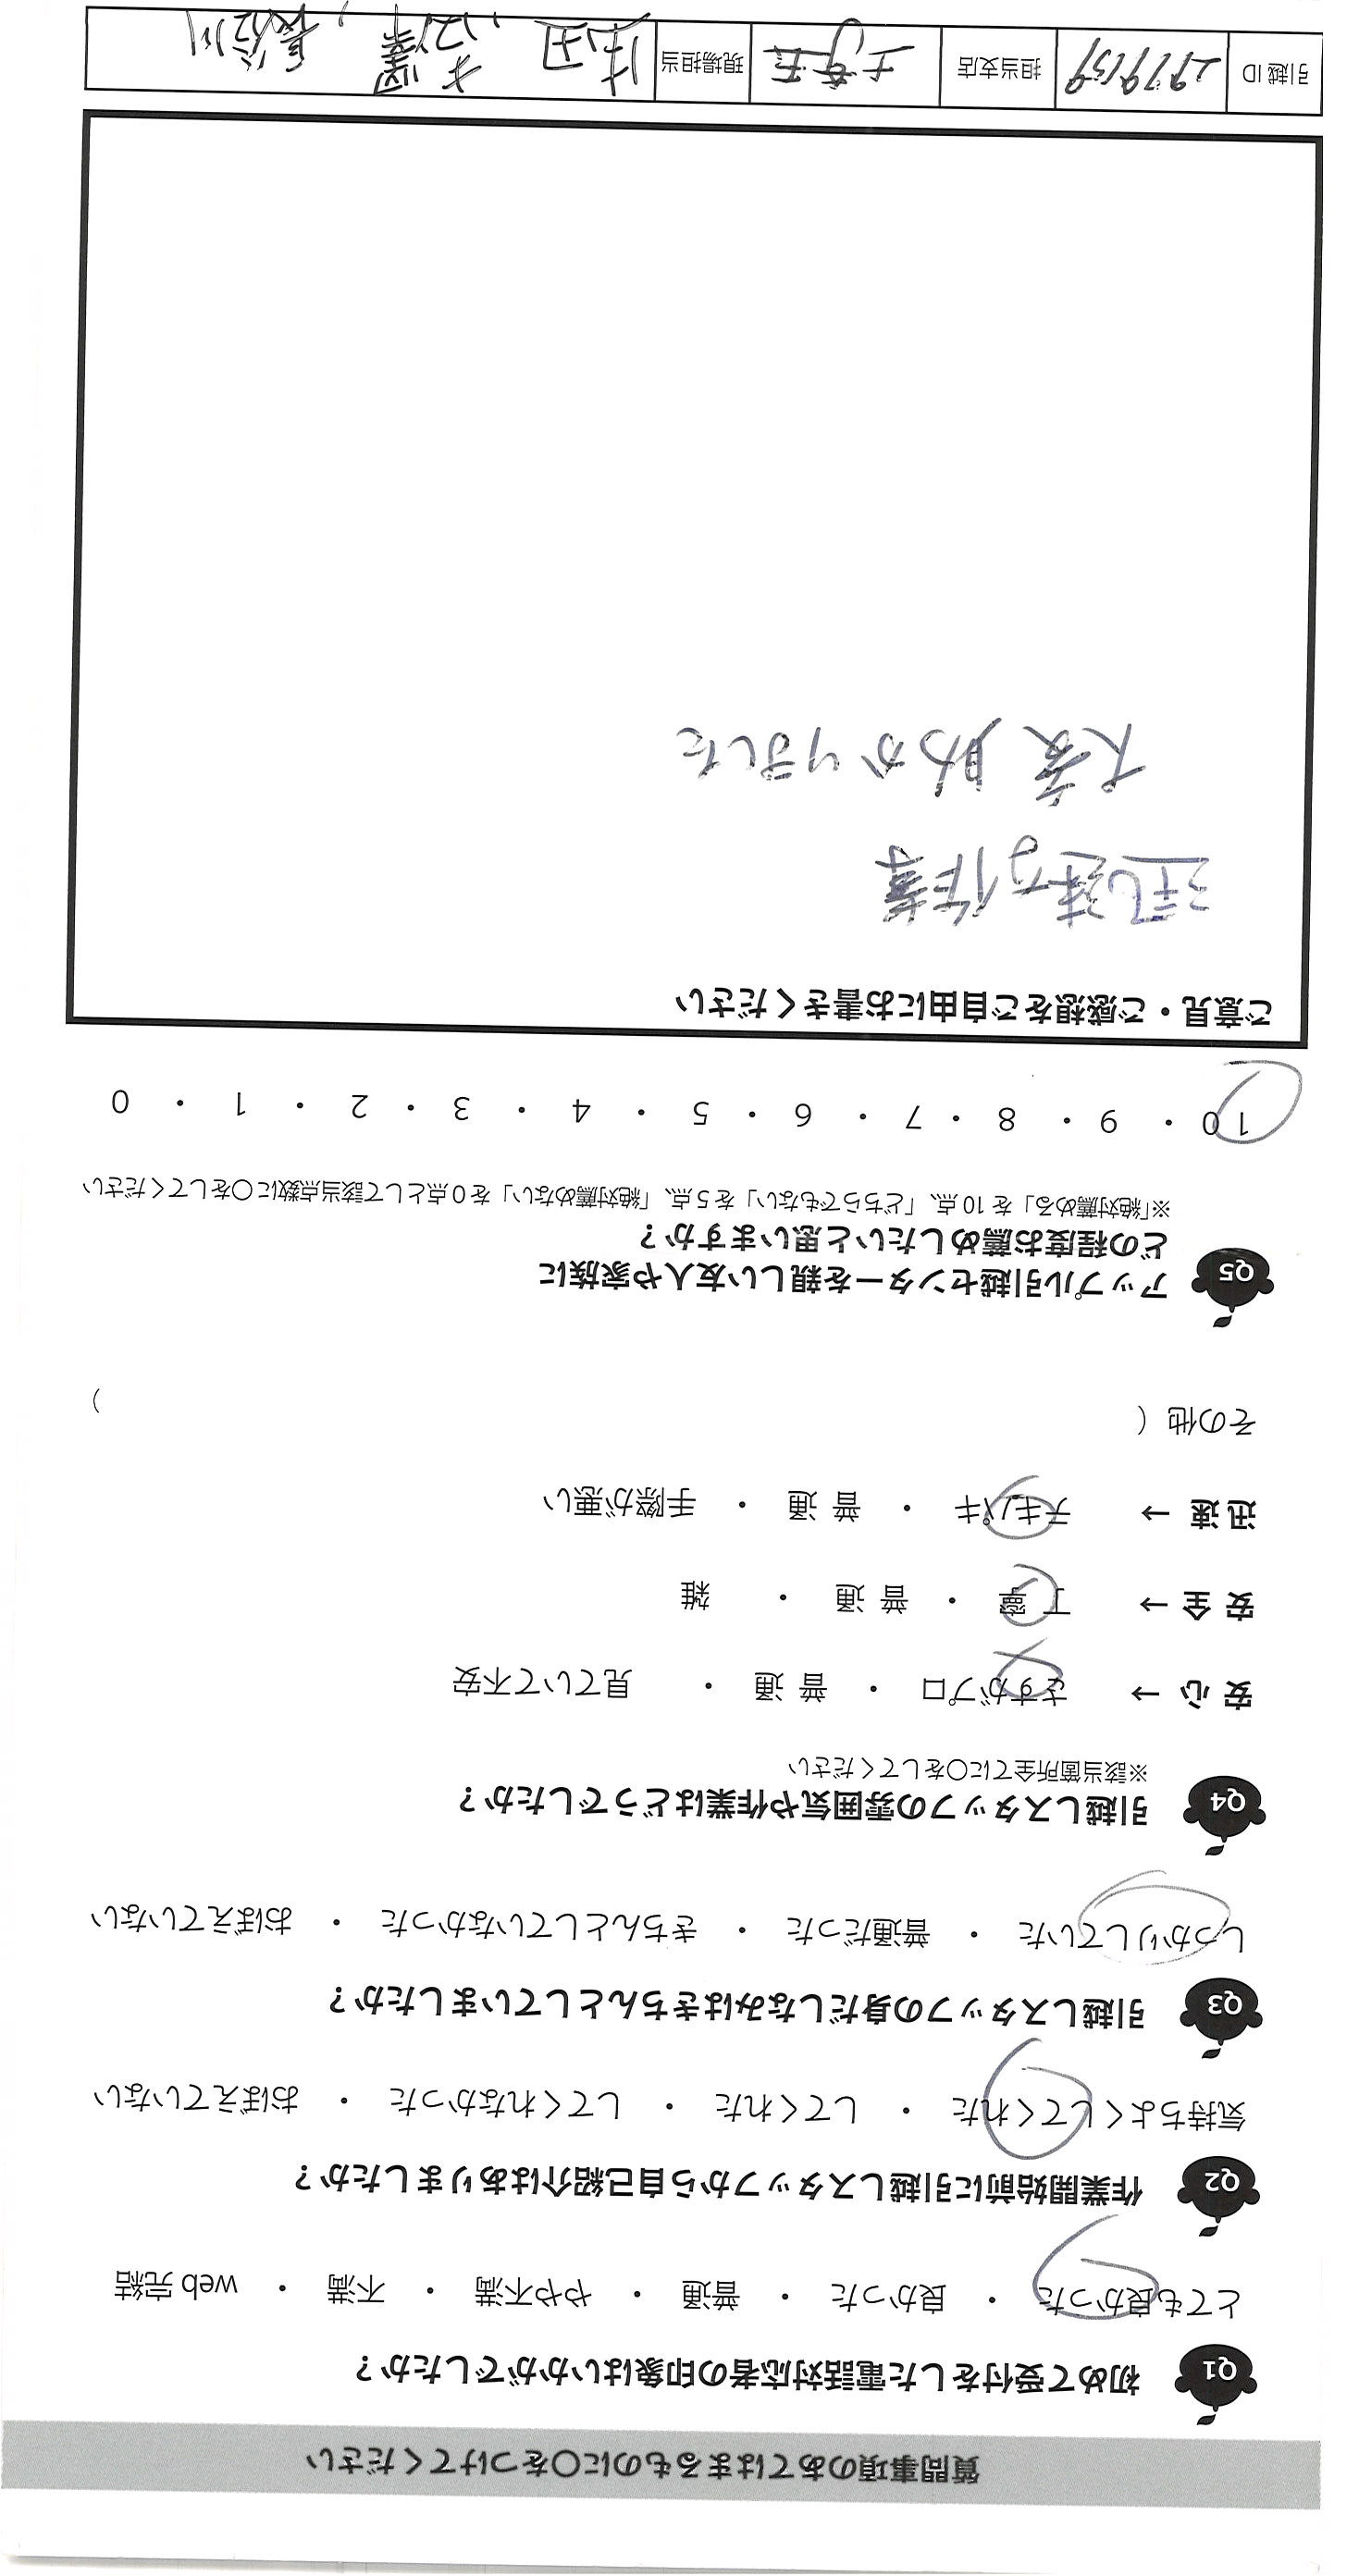 質問事項のあてはまるものに〇をつけてください
Q1 初めて受付をした電話対応者の印象はいかがでしたか？
とても良かった ・ 良かった ・ 普通 ・ やや不満 ・ 不満 ・ web 完結
Q2 作業開始前に引越しスタッフから自己紹介はありましたか？
気持ちよくしてくれた ・ してくれた ・ してくれなかった ・ おぼえていない
Q3 引越しスタッフの身だしなみはきちんとしていましたか？
しっかりしていた ・ 普通だった ・ きちんとしていなかった ・ おぼえていない
Q4 引越しスタッフの雰囲気や作業はどうでしたか？
※該当箇所全てに〇をしてください
安 心 → さすがプロ ・ 普 通 ・ 見ていて不安
安 全 → 丁 寧 ・ 普 通 ・ 雑
迅 速 → テキパキ ・ 普 通 ・ 手際が悪い
その他（ ）
Q5 アップル引越センターを親しい友人や家族に
どの程度お薦めしたいと思いますか？
※「絶対薦める」を 10 点、「どちらでもない」を 5 点、「絶対薦めない」を 0 点として該当点数に〇をしてください
10 ・ 9 ・ 8 ・ 7 ・ 6 ・ 5 ・ 4 ・ 3 ・ 2 ・ 1 ・ 0
ご意見・ご感想をご自由にお書きください
迅速な作業
大変助かりました
引越 ID 2979159 担当支店 現場担当 長谷川